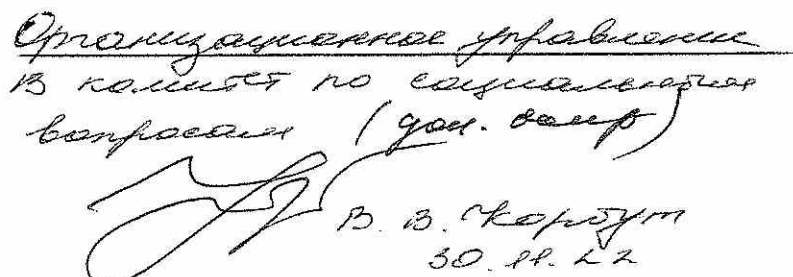 Организационное управление
В комитет по социальным
вопросам (доп. вопр)
В. В. Корбут
30.11.22